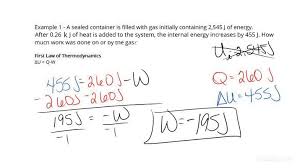 Example 1 - A sealed container is filled with gas initially containing 2,545 J of energy.
After 0.26 kJ of heat is added to the system, the internal energy increases by 455 J. How
much work was done on or by the gas?
First Law of Thermodynamics
ΔU = Q-W
U₁ = 2,545J
455J = 260J - W
-260J -260J
195J = -W
-1 -1
W = -195J
Q = 260 J
ΔU = 455J